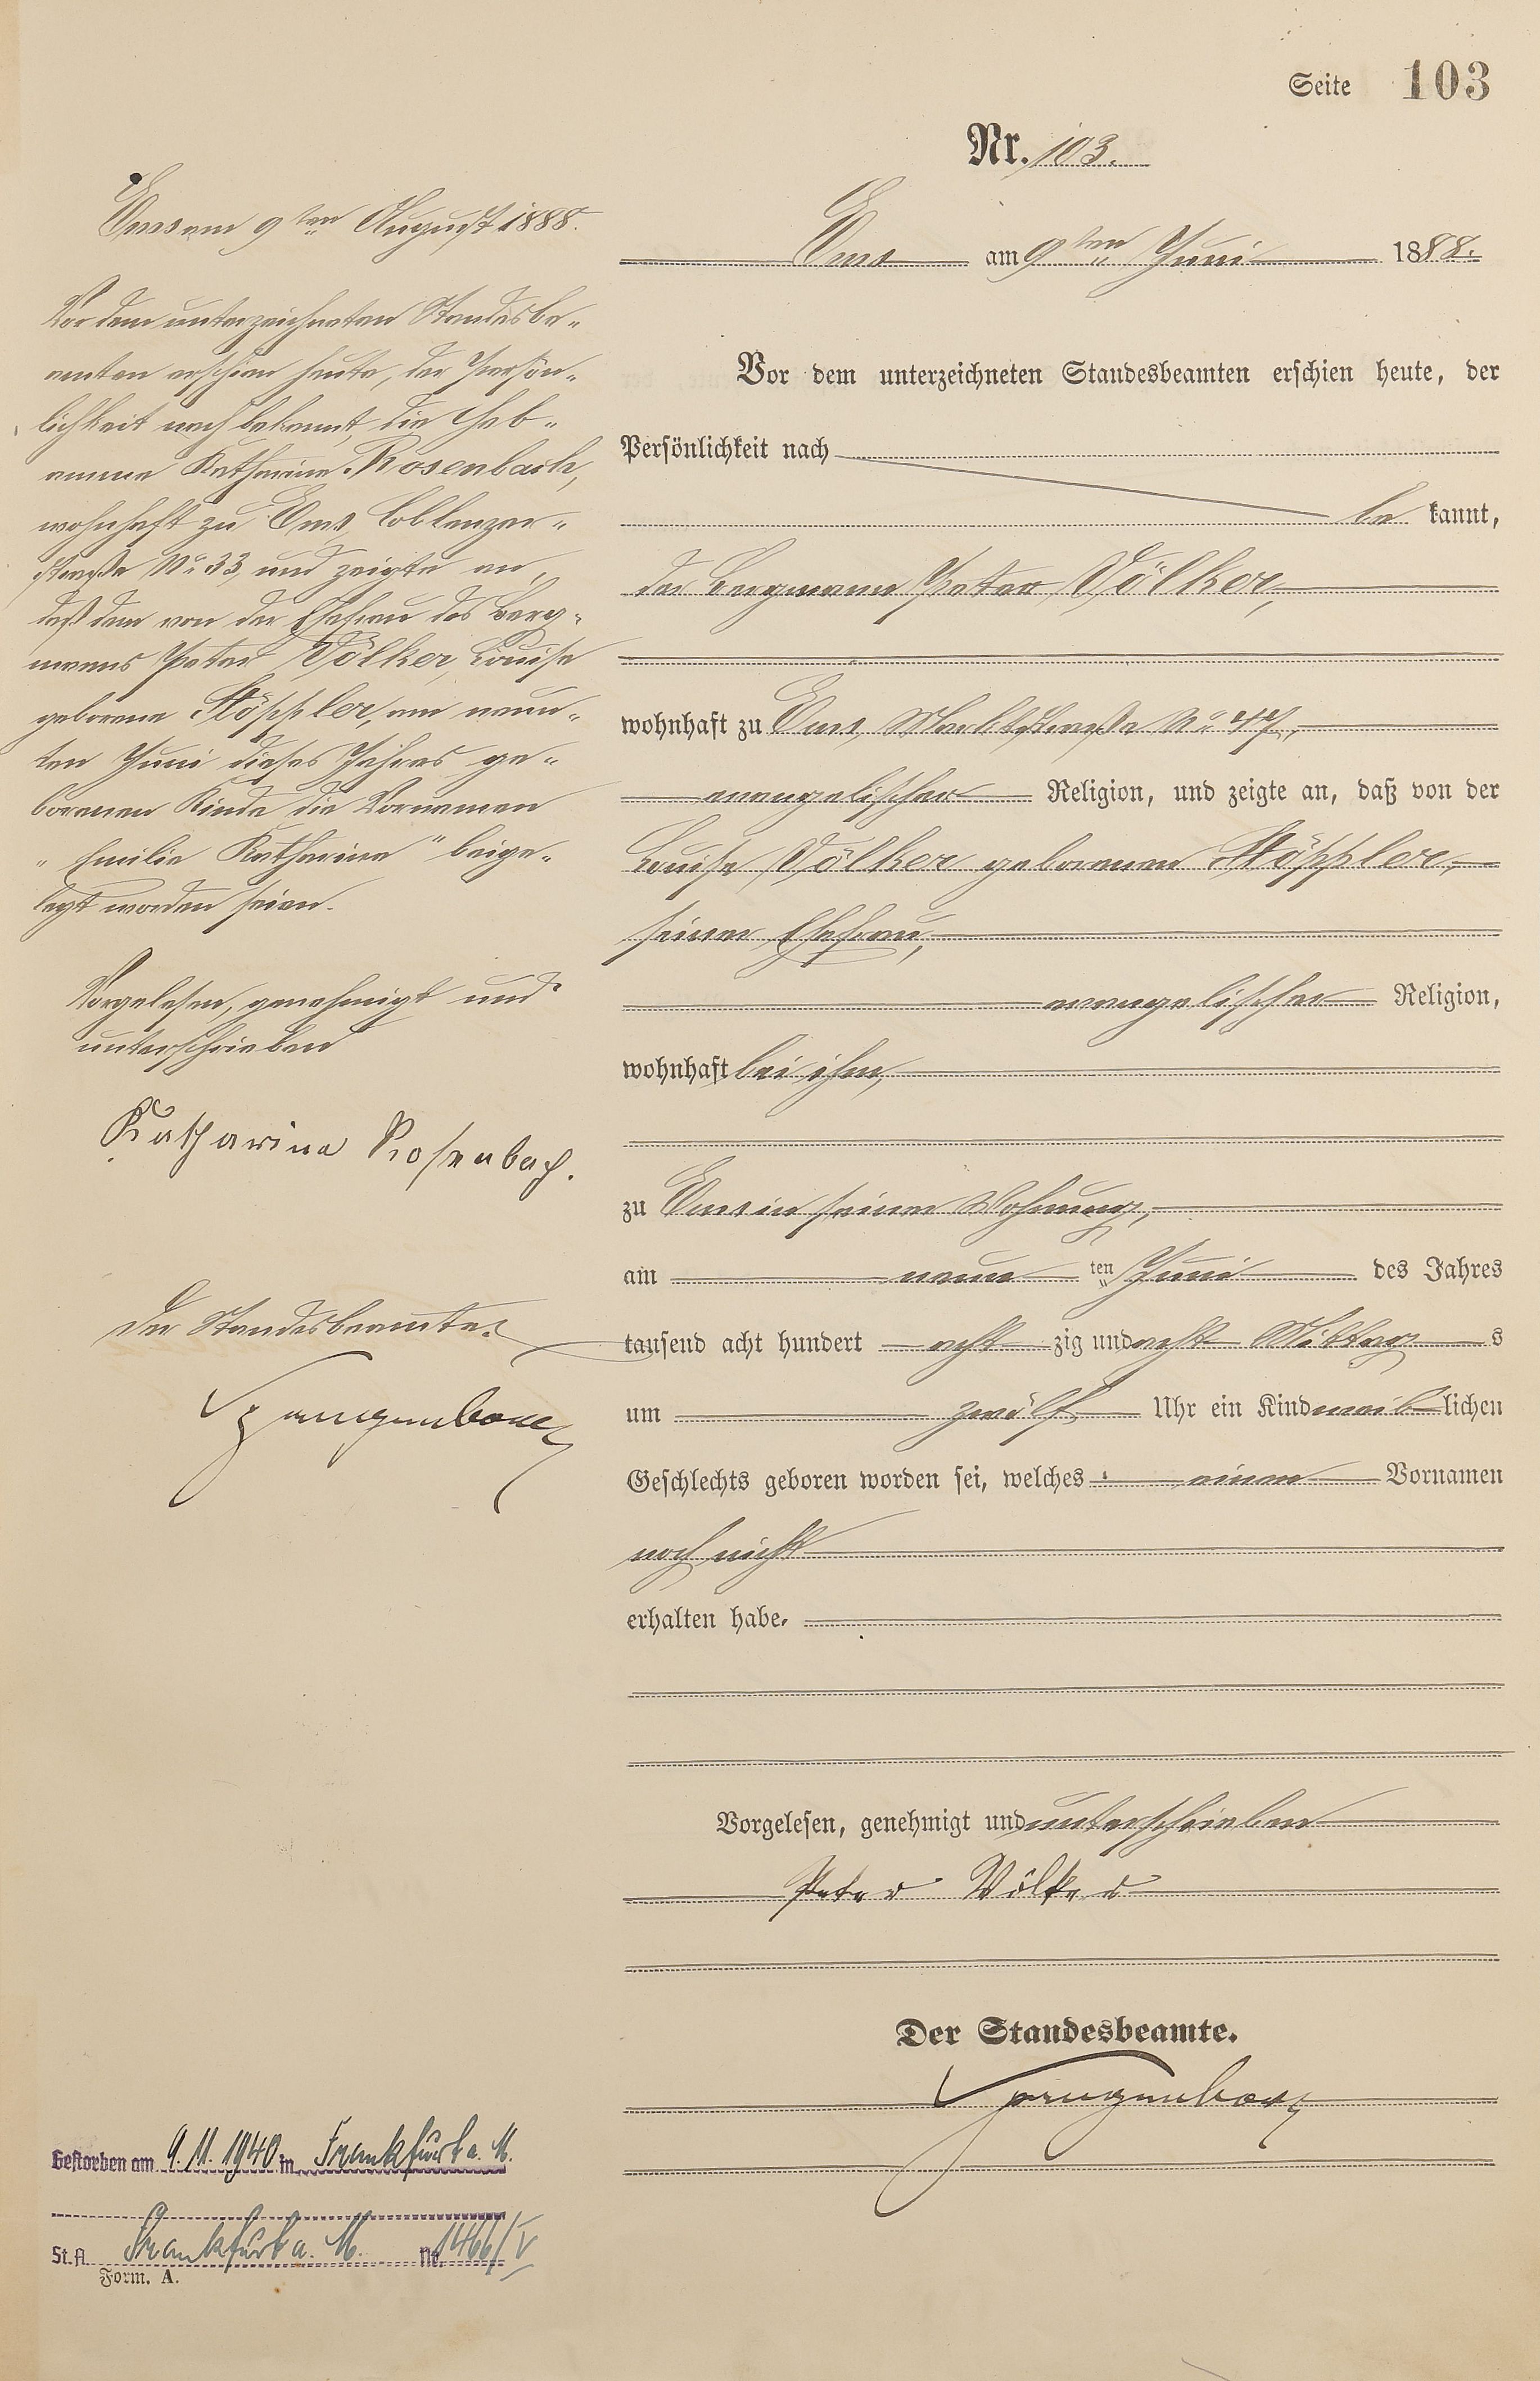 Seite 103
Nr. 103.
Ems am 9ten Juni 1888.
Vor dem unterzeichneten Standesbeamten erschien heute, der
Persönlichkeit nach
be kannt,
der Bergmann Peter Völker,
wohnhaft zu Ems, Marktstraße No 47,
evangelischer Religion, und zeigte an, daß von der
Louise Völker geborenen Stöppler,
seiner Ehefrau,
evangelischer Religion,
wohnhaft bei ihm,
zu Ems in seiner Wohnung,
am neun ten Juni des Jahres
tausend acht hundert acht zig und acht Mittag s
um zwölf Uhr ein Kind weib lichen
Geschlechts geboren worden sei, welches einen Vornamen
noch nicht
erhalten habe.
Vorgelesen, genehmigt und unterschrieben
Peter Völker
Der Standesbeamte.
Ems am 9ten August 1888.
Vor dem unterzeichneten Standesbe-
amten erschien heute, der Persön-
lichkeit nach bekannt, die Heb-
amme Katharina Rosenbach,
wohnhaft zu Ems, Coblenzer-
straße No 33, und zeigte an,
daß dem von der Ehefrau des Berg-
manns Peter Völker, Louise
geborene Stöppler, am neun-
ten Juni dieses Jahres ge-
borenen Kinde die Vornamen
"Emilie Katharina" beige-
legt worden seien.
Vorgelesen, genehmigt und
unterschrieben
Katharina Rosenbach.
Der Standesbeamte.
Gestorben am 9.11.1940 in Frankfurt a. M.
St. A. Frankfurt a. M. Nr. 1466/V
Form. A.